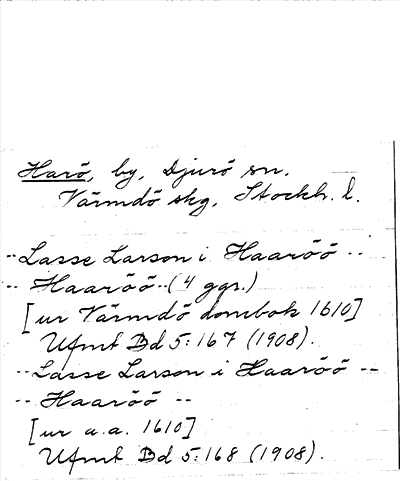 Harö, by, Djurö sn.
Värmdö skg, Stockh. l.
--Lasse Larson i Haaröö --
-- Haaröö--(4 ggr.)
[ur Värmdö dombok 1610]
Ufmt Bd 5:167 (1908).
--Lasse Larson i Haaröö --
-- Haaröö --
[ur a.a. 1610]
Ufmt Bd 5:168 (1908).